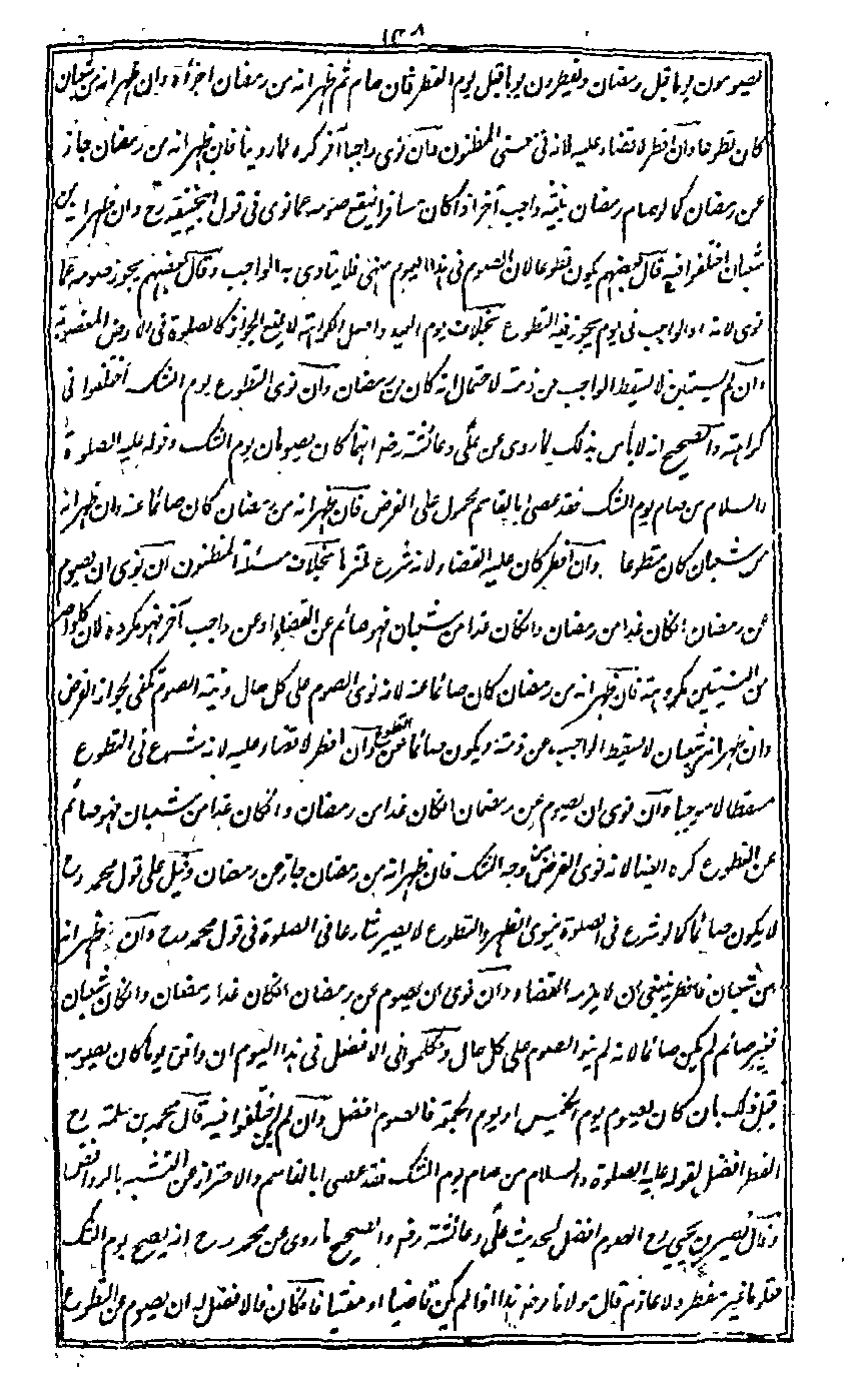 ١٣٨
يصومون يوما قبل رمضان ويفطرون يوما قبل يوم الفطر فان صام ثم ظهر انه من رمضان اجزأه وان ظهر انه من شعبان
كان تطوعا وان افطر لا قضاء عليه لانه فى معنى المظنون وان نوى واجبا آخر كره لما روينا فان ظهر انه من رمضان جاز
عن رمضان كما لو صام رمضان بنية واجب آخر اذا كان مسافرا يقع صومه عما نوى فى قول ابيحنيفة رح وان ظهر انه من
شعبان اختلفوا فيه قال بعضهم يكون تطوعا لان الصوم فى هذا اليوم منهى فلا يتادى به الواجب وقال بعضهم يجوز صومه عما
نوى لانه ادا الواجب فى يوم يجوز فيه التطوع بخلاف يوم العيد واصل الكراهة لا يمنع الجواز كالصلوة فى الارض المغصوبة
وان لم يستبين لا يسقط الواجب عن ذمته لاحتمال انه كان من رمضان وان نوى التطوع يوم الشك اختلفوا فى
كراهته والصحيح انه لا بأس بذلك لما روى عن على وعائشة رضه انهما كان يصومان يوم الشك وقوله عليه الصلوة
والسلام من صام يوم الشك فقد عصى ابا القاسم محمول على الفرض فان ظهر انه من رمضان كان صائما عنه وان ظهر انه
من شعبان كان متطوعا وان افطر كان عليه القضاء لانه شرع ملتزما بخلاف مسئلة المظنون ان نوى ان يصوم
عن رمضان انكان غدا من رمضان وانكان غدا من شعبان فهو صائم عن القضاء او عن واجب آخر فهو مكروه لان كلواحد
من النيتين مكروهة فان ظهر انه من رمضان كان صائما عنه لانه نوى الصوم على كل حال ونية الصوم تكفى لجواز الفرض
وان ظهر انه من شعبان لا يسقط الواجب عن ذمته ويكون صائما عن التطوع وان افطر لا قضاء عليه لانه شرع فى التطوع
مسقطا لا موجبا وان نوى ان يصوم عن رمضان انكان غدا من رمضان وانكان غدا من شعبان فهو صائم
عن التطوع كره ايضا لانه نوى الفرض من وجه الشك فان ظهر انه من رمضان جاز عن رمضان وقيل على قول محمد رح
لا يكون صائما كما لو شرع فى الصلوة ينوى الظهر والتطوع لا يصير شارعا فى الصلوة فى قول محمد رح وان ظهر انه
من شعبان فافطر ينبغى ان لا يلزمه القضاء وان نوى ان يصوم عن رمضان انكان غدا رمضان وانكان شعبان
فغير صائم لم يكن صائما لانه لم ينو الصوم على كل حال وتكلموا فى الافضل فى هذا اليوم ان وافق يوما كان يصومه
قبل ذلك بان كان يصوم يوم الخميس او يوم الجمعة فالصوم افضل وان لم يكن اختلفوا فيه قال محمد بن سلمة رح
الفطر افضل لقوله عليه الصلوة والسلام من صام يوم الشك فقد عصى ابا القاسم والاحتراز عن التشبه بالروافض
وقال نصير بن يحيى رح الصوم افضل لحديث على وعائشة رضه والصحيح ما روى عن محمد رح انه يصبح يوم الشك
متلوما غير مفطر ولا عازم قال مولانا رضه هذا اذا لم يكن قاضيا او مفتيا فان كان فالافضل له ان يصوم عن التطوع